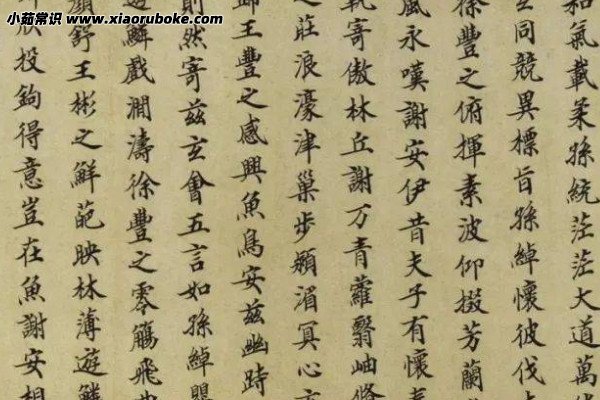 小茹常识 www.xiaoruboke.com
和氣載柔孫統茫茫大道萬
同競異標旨孫綽懷彼伐
徐豐之俯揮素波仰掇芳蘭
風永嘆謝安伊昔先子有懷
執寄傲林丘謝万青蘿翳岫脩
之莊浪濠津巢步潁湄冥心
歸王豐之感興魚鳥安茲幽時
則然寄茲玄會五言如孫綽
鱗戲澗濤徐豐之零觴飛
顏舒王彬之鮮葩映林薄遊鱗
欣投鉤得意豈在魚謝安相